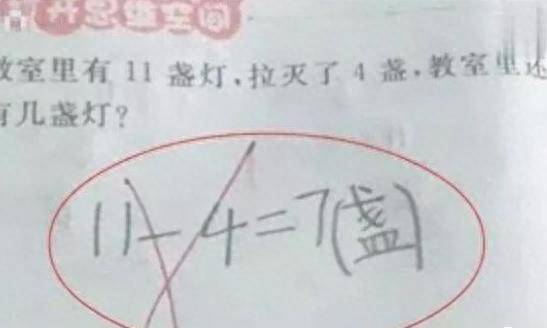 升思维空间
教室里有 11 盏灯,拉灭了 4 盏,教室里还
有几盏灯?
11-4=7(盏)